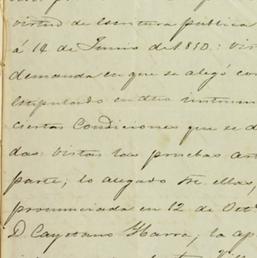 virtud de Escritura publica
á 14 de Junio de 1850: vis
demanda en que se alegó con
estipulado en dho instrum
ciertas condiciones que se d
das vistas las pruebas
parte; lo alegado ellas,
pronunciada en 12 de Octe
D Cayetano Ibarra; la ap